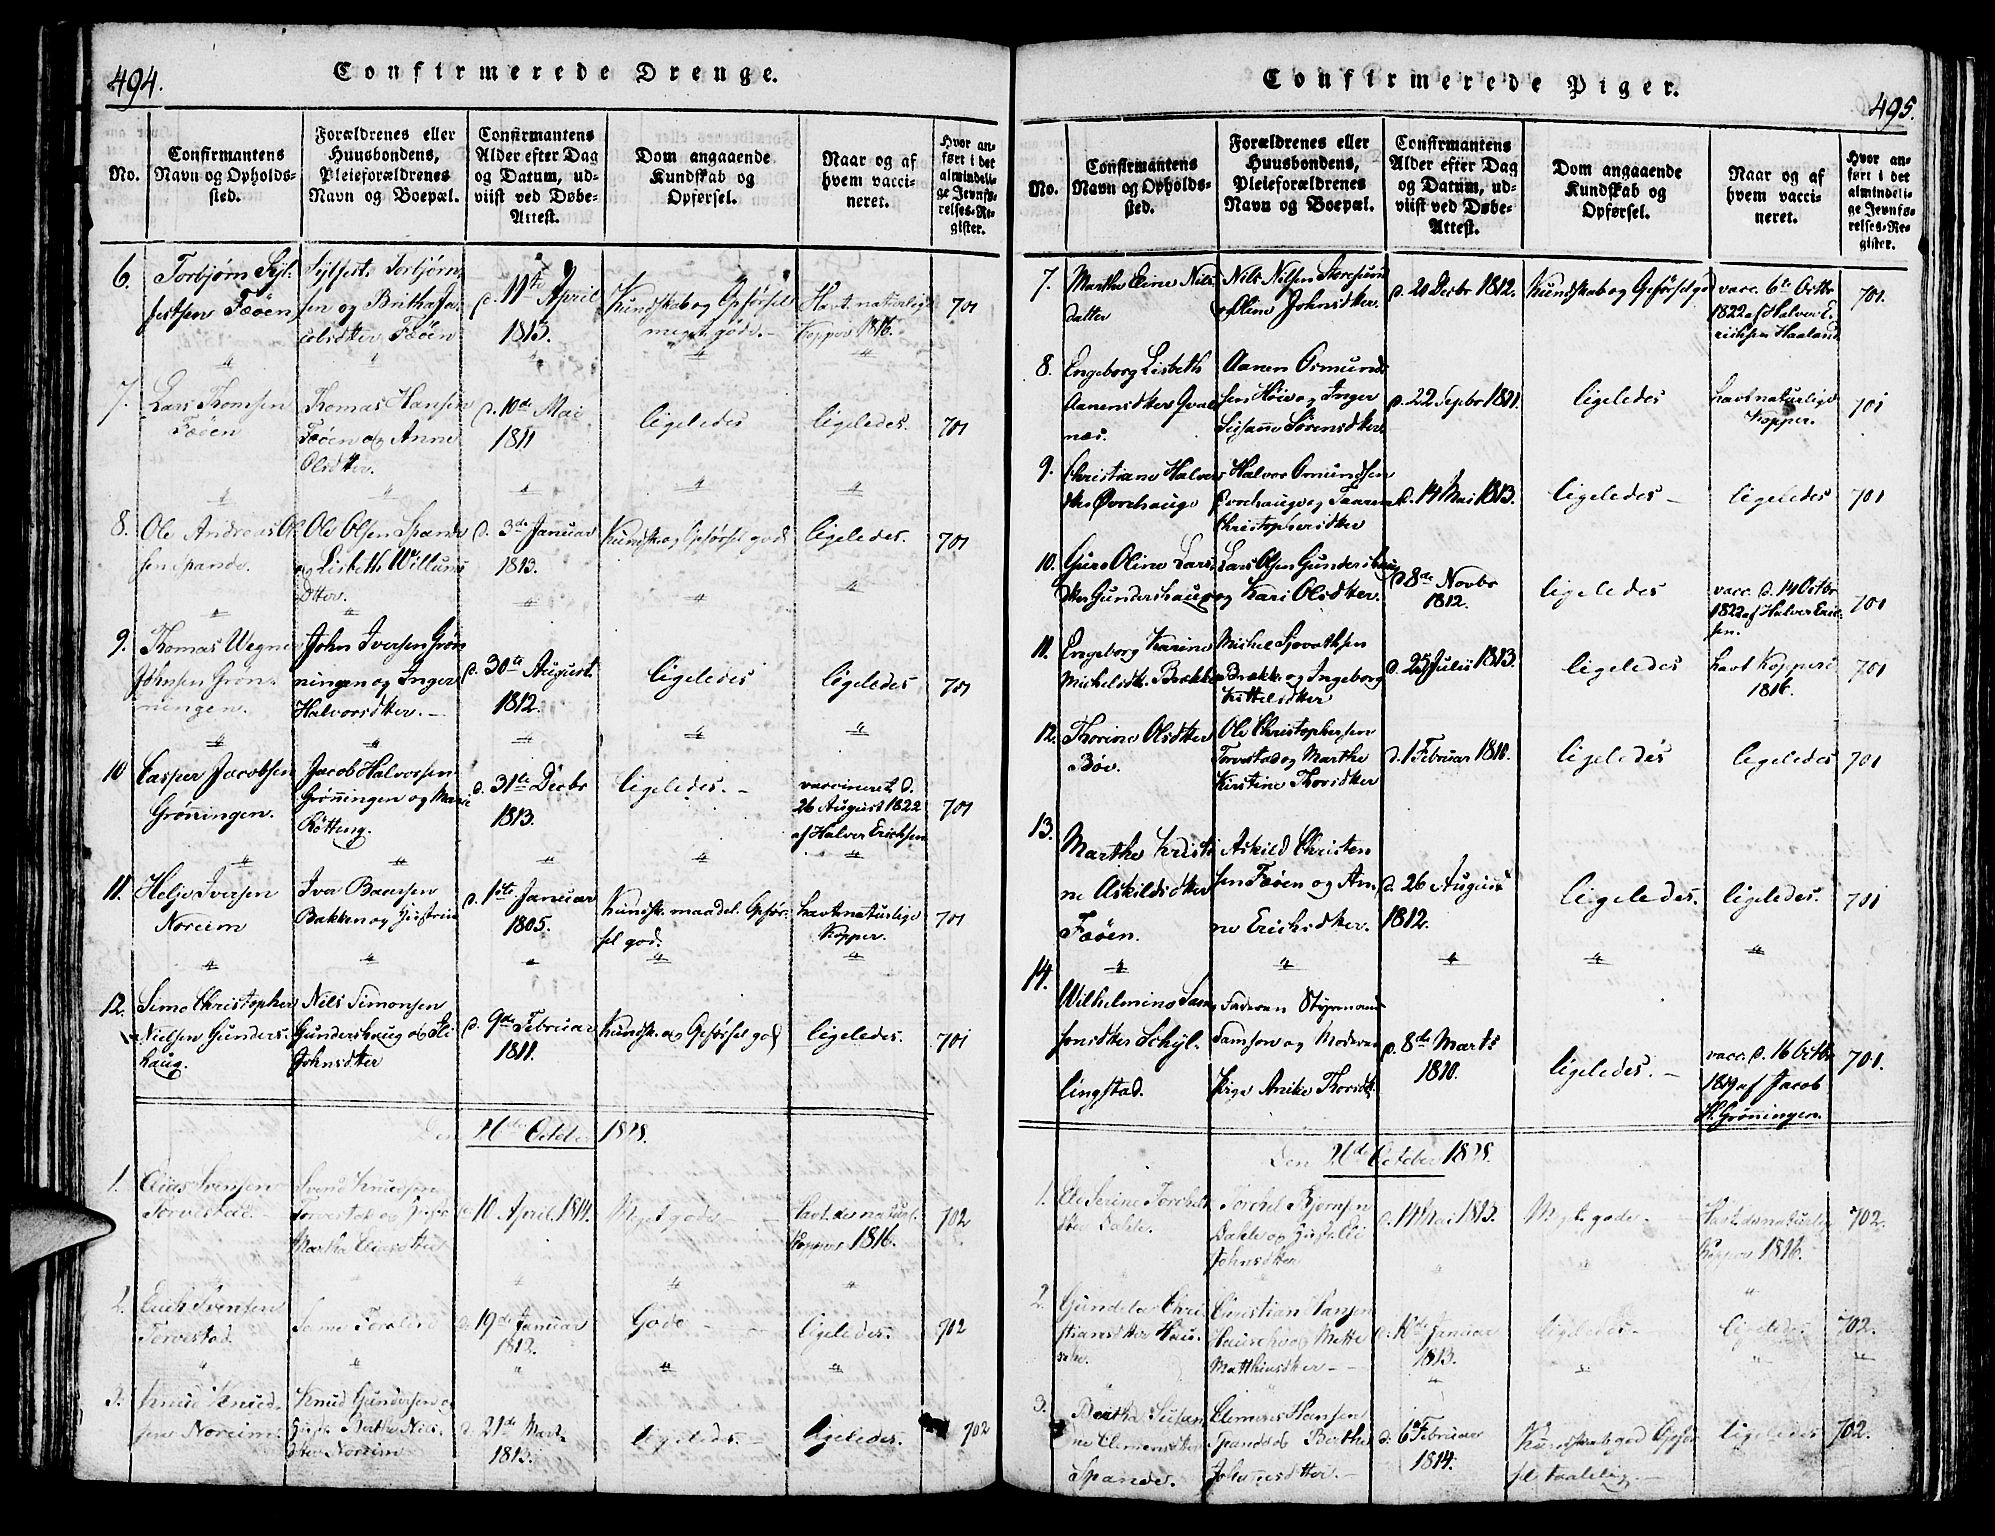 494.
Confirmerede Drenge.
No.
Confirmantens
Navn og Opholds-
sted.
Forældrenes eller
Huusbondens,
Pleieforældrenes
Navn og Boepæl.
Confirmantens
Alder efter Dag
og Datum, ud-
viist ved Døbe-
Attest.
Dom angaaende
Kundskab og
Opførsel.
Naar og af
hvem vacci-
neret.
Hvor an-
ført i det
almindeli-
ge Jevnfø-
relses-Re-
gister.
6.
Torbjørn Syl-
festsen Fæøen
Sylfest Torbjørn-
sen og Britha Ja-
cobsdtter Fæøen
d. 11te April
1813.
Kundskab og Opførsel
meget gode. -
Havt naturlige
Kopper 1816.
701
7.
Lars Thomsen
Fæøen
Thomas Hansen
Fæøen og Anne
Olsdtter.
d. 10de Mai
1811
ligeledes
ligeledes.
701
8.
Ole Andreas Ol-
sen Spande.
Ole Olsen Spande
og Lisbeth Willums
Dtter.
d. 3de Januar
1813.
Kundsk. og Opførsel god
ligeledes.
701
9.
Thomas Wegner
Johnsen Grøn-
ningen.
John Iversen Grøn
ningen og Inger
Halvorsdtter. -
d. 30te August
1812.
ligeledes
ligeledes
701
10
Casper Jacobsen
Grønningen.
Jacob Halvorsen
Grønningen og Marie
Røtting.
d. 31te Decbr
1813.
ligeledes. -
vaccineret d.
26 August 1822
af Halver Erichsen
701
11.
Helje Iversen
Noreim
Iver Baarsen
Bakken og
d. 1ste Januar
1805.
Kundsk. maadel. Opfør-
sel god.
havt naturlige
Kopper.
701
12.
Simo Christopher
Nielsen Gunders-
haug.
Nils Simonsen
Gundershaug og Eli
Johnsdtter
d. 9de Februar
1811.
Kundsk. og Opførsel god
ligeledes.
701
Den 26de Octobr 1828.
1.
Elias Svensen
Torvestad.
Svend Knudsen
Torvestad og
Martha Eliasdtter
d. 10 April 1814.
Meget gode
Havt de naturl.
Kopper 1816.
702
2.
Erich Svensen
Torvestad.
Samme Forældre
d. 19de Januar
1812.
Gode
ligeledes.
702
3.
Knud Knud-
sen Noreim.
Knud Gundersen og
Berthe Nils-
dtter Noreim
d. 21de Marts
1813.
ligeledes. -
ligeledes.
702
Confirmerede Piger.
495.
No.
Confirmantens
Navn og Opholds-
sted.
Forældrenes eller
Huusbondens,
Pleieforældrenes
Navn og Boepæl.
Confirmantens
Alder efter Dag
og Datum, ud-
viist ved Døbe-
Attest.
Dom angaaende
Kundskab og
Opførsel.
Naar og af
hvem vacci-
neret.
Hvor an-
ført i det
almindeli-
ge Jevnfø-
relses-Re-
gister.
7.
Marthe Eline Nils-
datter
Nils Nilsen Storesund
og Oline Johnsdtter.
d. 20 Decbr 1812.
Kundskab og Opførsel god
vacc. 6te Octbr
1822 af Halver E-
richsen Haaland
701.
8.
Engeborg Lisbeth
Aanensdtter Qval-
næs.
Aanen Osmund-
sen Høie og Inger
Susanne Sørensdtter.
d. 22 Sepbr 1801.
ligeledes
havt naturlige
Kopper.
701
9.
Christiane Halvors
dtter Øvrehauge
Halvor Osmundsen
Øvrehauge og Taaran
Christophersdtter
d. 14 Mai 1813.
ligeledes -
ligeledes
701
10.
Guro Oline Lars-
dtter Gundershaug
Lars Olsen Gundershaug
og Kari Olsdtter.
d 8de Novbr
1812.
ligeledes
vacc. d. 14 Octbr
1822 af Halver Erich-
sen.
701
11.
Engeborg Karine
Michelsdtr. Brække
Michel Sjovathsen
Brække og Ingeborg
Kittelsdtter
d. 25 Julii 1813.
ligeledes
havt Kopperne
1816.
701
12.
Thorine Olsdtter
Bøe.
Ole Christophersen
Torvestad og Marthe
Kirstine Thorsdtter
d. 1 Februar 1810.
ligeledes
ligeledes
701
13.
Marthe Kristi-
ne Askildsdtter
Fæøen.
Askild Christen
sen Fæøen og An-
ne Erichsdtter.
d. 26 August
1812.
ligeledes.
ligeledes.
701
14.
Wilhelmine Sam-
sonsdtter Schyl-
lingstad.
Faderen Styrmand
Samson og Moderen
Pige Anike Thorsdtr.
d. 8de Marts
1810.
ligeledes. -
vacc. d. 16 Octbr
1819 af Jacob
H. Grønningen.
701.
Den 26de October 1828.
1.
Else Serine Torchels-
dtter Dahle.
Torchel Bjørnsen
Dahle og
Johnsdtter
d. 14 Mai 1813.
Meget gode. -
Havt de naturlige
Kopper 1816.
702.
2.
Gundela Chri-
stiansdtter Hau-
sche.
Christian Hansen
Hausche og Mette
Matthiasdtter - -
d. 10de Januar
1813.
ligeledes. -
ligeledes.
702.
3.
Berthe Susan-
ne Clemensdtter
Spande.
Clemens Hansen
Spande og Berthe
Johannesdtter. -
d. 6te Februar
1814.
Kundskab god Opfør-
sel taalelig -
ligeledes
702.